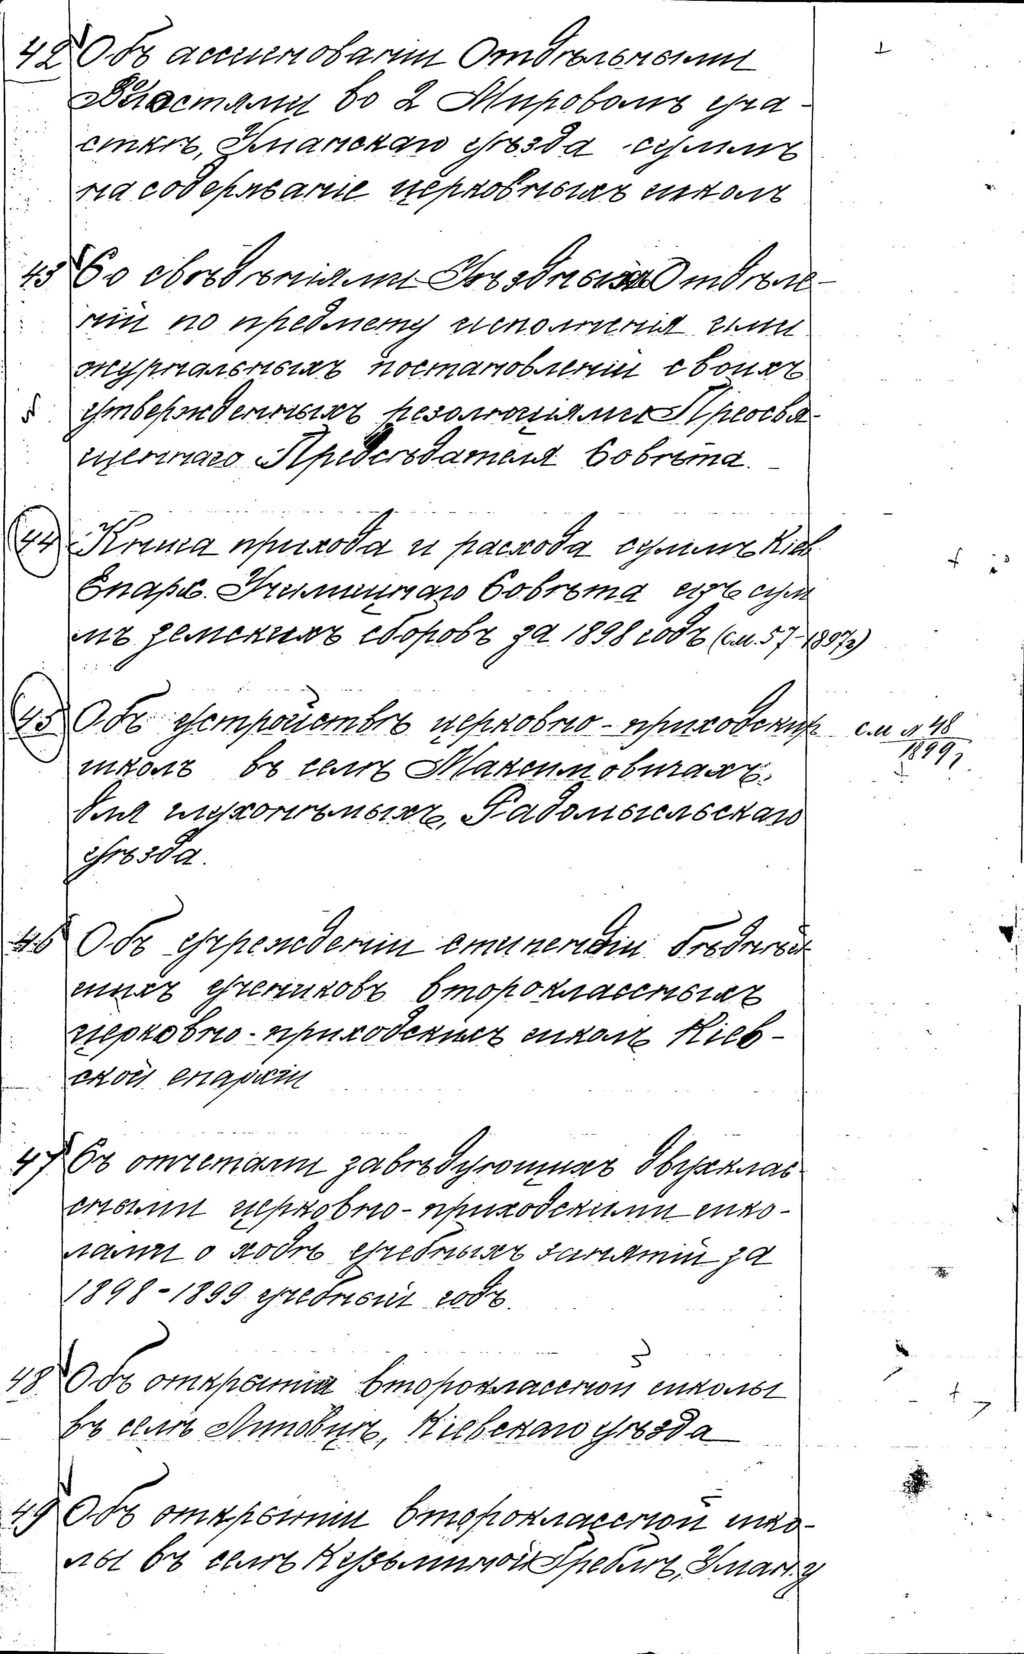 42 Объ ассигнованіи Отдѣльными
Властями во 2 Мировомъ уча-
сткѣ, Уманскаго уѣзда суммъ
на содержаніе церковныхъ школъ
43 Со свѣдѣніями Уѣздныхъ Отдѣле-
ній по предмету исполненія ими
журнальныхъ постановленій своихъ
утвержденныхъ резолюціями Преосвя-
щеннаго Предсѣдателя Совѣта.
44 Книга прихода и расхода суммъ Кіев
Епарх. Училищнаго Совѣта изъ сум
мъ земскихъ сборовъ за 1898 годъ (см. 57-1897г)
45 Объ устройствѣ церковно-приходскихъ см № 48
школъ въ селѣ Максимовичахъ, 1899 г
для глухонѣмыхъ, Радомысльскаго
уѣзда.
46 Объ учрежденіи стипендіи бѣднѣй
шихъ учениковъ второклассныхъ
церковно-приходскихъ школъ Кіев-
ской епархіи
47 Съ отчетами завѣдующихъ двухклас
сными церковно-приходскими шко-
лами о ходѣ учебныхъ занятій за
1898-1899 учебный годъ.
48 Объ открытіи второклассной школы
въ селѣ Литовцѣ, Кіевскаго уѣзда
49 Объ открытіи второклассной шко-
лы въ селѣ Кузьминой Греблѣ, Уман. у